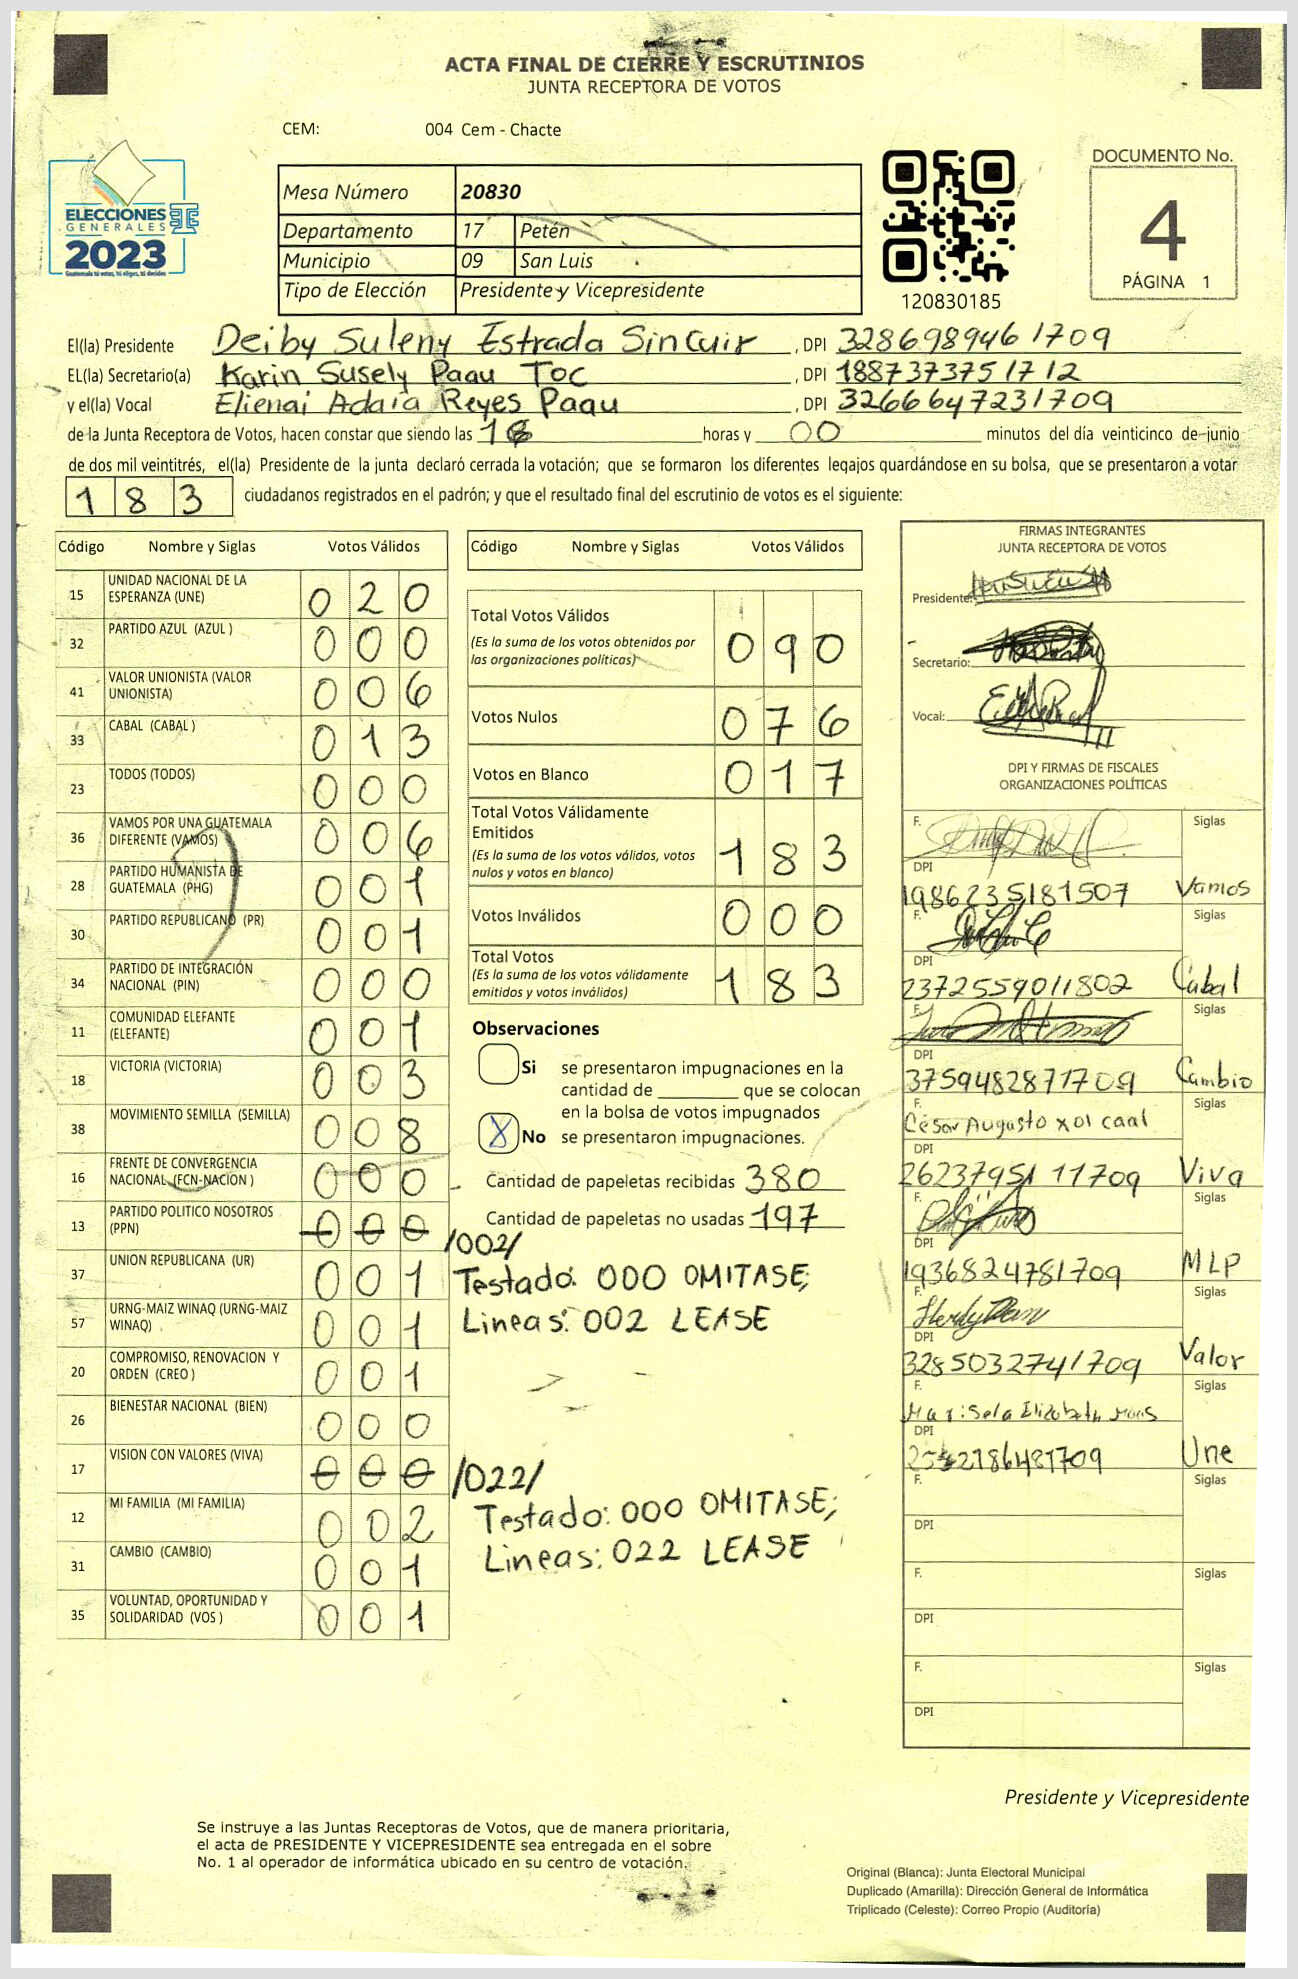 ACTA FINAL DE CIERRE Y ESCRUTINIOS
JUNTA RECEPTORA DE VOTOS
CEM: 004 Cem - Chacte
ELECCIONES
GENERALES
2023
Guatemala tú votas, tú eliges, tú decides
Mesa Número 20830
Departamento 17 Petén
Municipio 09 San Luis
Tipo de Elección Presidente y Vicepresidente
120830185
DOCUMENTO No.
4
PÁGINA 1
El(la) Presidente Deiby Suleny Estrada Sincuir, DPI 3286989461709
EL(la) Secretario(a) Karin Susely Paau Toc, DPI 1887373751712
y el(la) Vocal Elienai Adaia Reyes Paau, DPI 3266647231709
de la Junta Receptora de Votos, hacen constar que siendo las 18 horas y 00 minutos del día veinticinco de junio
de dos mil veintitrés, el(la) Presidente de la junta declaró cerrada la votación; que se formaron los diferentes legajos guardándose en su bolsa, que se presentaron a votar
183 ciudadanos registrados en el padrón; y que el resultado final del escrutinio de votos es el siguiente:
Código Nombre y Siglas Votos Válidos
15 UNIDAD NACIONAL DE LA ESPERANZA (UNE) 020
32 PARTIDO AZUL (AZUL ) 000
41 VALOR UNIONISTA (VALOR UNIONISTA) 006
33 CABAL (CABAL ) 013
23 TODOS (TODOS) 000
36 VAMOS POR UNA GUATEMALA DIFERENTE (VAMOS) 006
28 PARTIDO HUMANISTA DE GUATEMALA (PHG) 001
30 PARTIDO REPUBLICANO (PR) 001
34 PARTIDO DE INTEGRACIÓN NACIONAL (PIN) 000
11 COMUNIDAD ELEFANTE (ELEFANTE) 001
18 VICTORIA (VICTORIA) 003
38 MOVIMIENTO SEMILLA (SEMILLA) 008
16 FRENTE DE CONVERGENCIA NACIONAL (FCN-NACION ) 000
13 PARTIDO POLITICO NOSOTROS (PPN) 000 /002/
37 UNION REPUBLICANA (UR) 001
57 URNG-MAIZ WINAQ (URNG-MAIZ WINAQ) 001
20 COMPROMISO, RENOVACION Y ORDEN (CREO ) 001
26 BIENESTAR NACIONAL (BIEN) 000
17 VISION CON VALORES (VIVA) 000 /022/
12 MI FAMILIA (MI FAMILIA) 002
31 CAMBIO (CAMBIO) 001
35 VOLUNTAD, OPORTUNIDAD Y SOLIDARIDAD (VOS ) 001
Código Nombre y Siglas Votos Válidos
Total Votos Válidos 090
(Es la suma de los votos obtenidos por
las organizaciones políticas)
Votos Nulos 076
Votos en Blanco 017
Total Votos Válidamente
Emitidos 183
(Es la suma de los votos válidos, votos
nulos y votos en blanco)
Votos Inválidos 000
Total Votos 183
(Es la suma de los votos válidamente
emitidos y votos inválidos)
Observaciones
Si se presentaron impugnaciones en la
cantidad de ________ que se colocan
en la bolsa de votos impugnados
X No se presentaron impugnaciones.
Cantidad de papeletas recibidas 380
Cantidad de papeletas no usadas 197
Testado: 000 OMITASE;
Lineas: 002 LEASE
Testado: 000 OMITASE;
Lineas: 022 LEASE
FIRMAS INTEGRANTES
JUNTA RECEPTORA DE VOTOS
Presidente:
Secretario:
Vocal:
DPI Y FIRMAS DE FISCALES
ORGANIZACIONES POLÍTICAS
F. Siglas
DPI
1986235181507 Vamos
F. Siglas
DPI
2372559011802 Cabal
F. Siglas
DPI
3759482871709 Cambio
F. Siglas
César Augusto xol caal
DPI
2623795111709 Viva
F. Siglas
DPI
1936824781709 MLP
F. Siglas
DPI
3285032741709 Valor
F. Siglas
Marisela Elizabeth
DPI
Une
F. Siglas
DPI
F. Siglas
DPI
F. Siglas
DPI
Presidente y Vicepresidente
Se instruye a las Juntas Receptoras de Votos, que de manera prioritaria,
el acta de PRESIDENTE Y VICEPRESIDENTE sea entregada en el sobre
No. 1 al operador de informática ubicado en su centro de votación.
Original (Blanca): Junta Electoral Municipal
Duplicado (Amarilla): Dirección General de Informática
Triplicado (Celeste): Correo Propio (Auditoría)